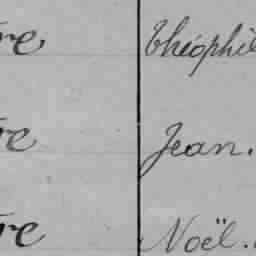 re Théophile
re Jean.
re Noël.